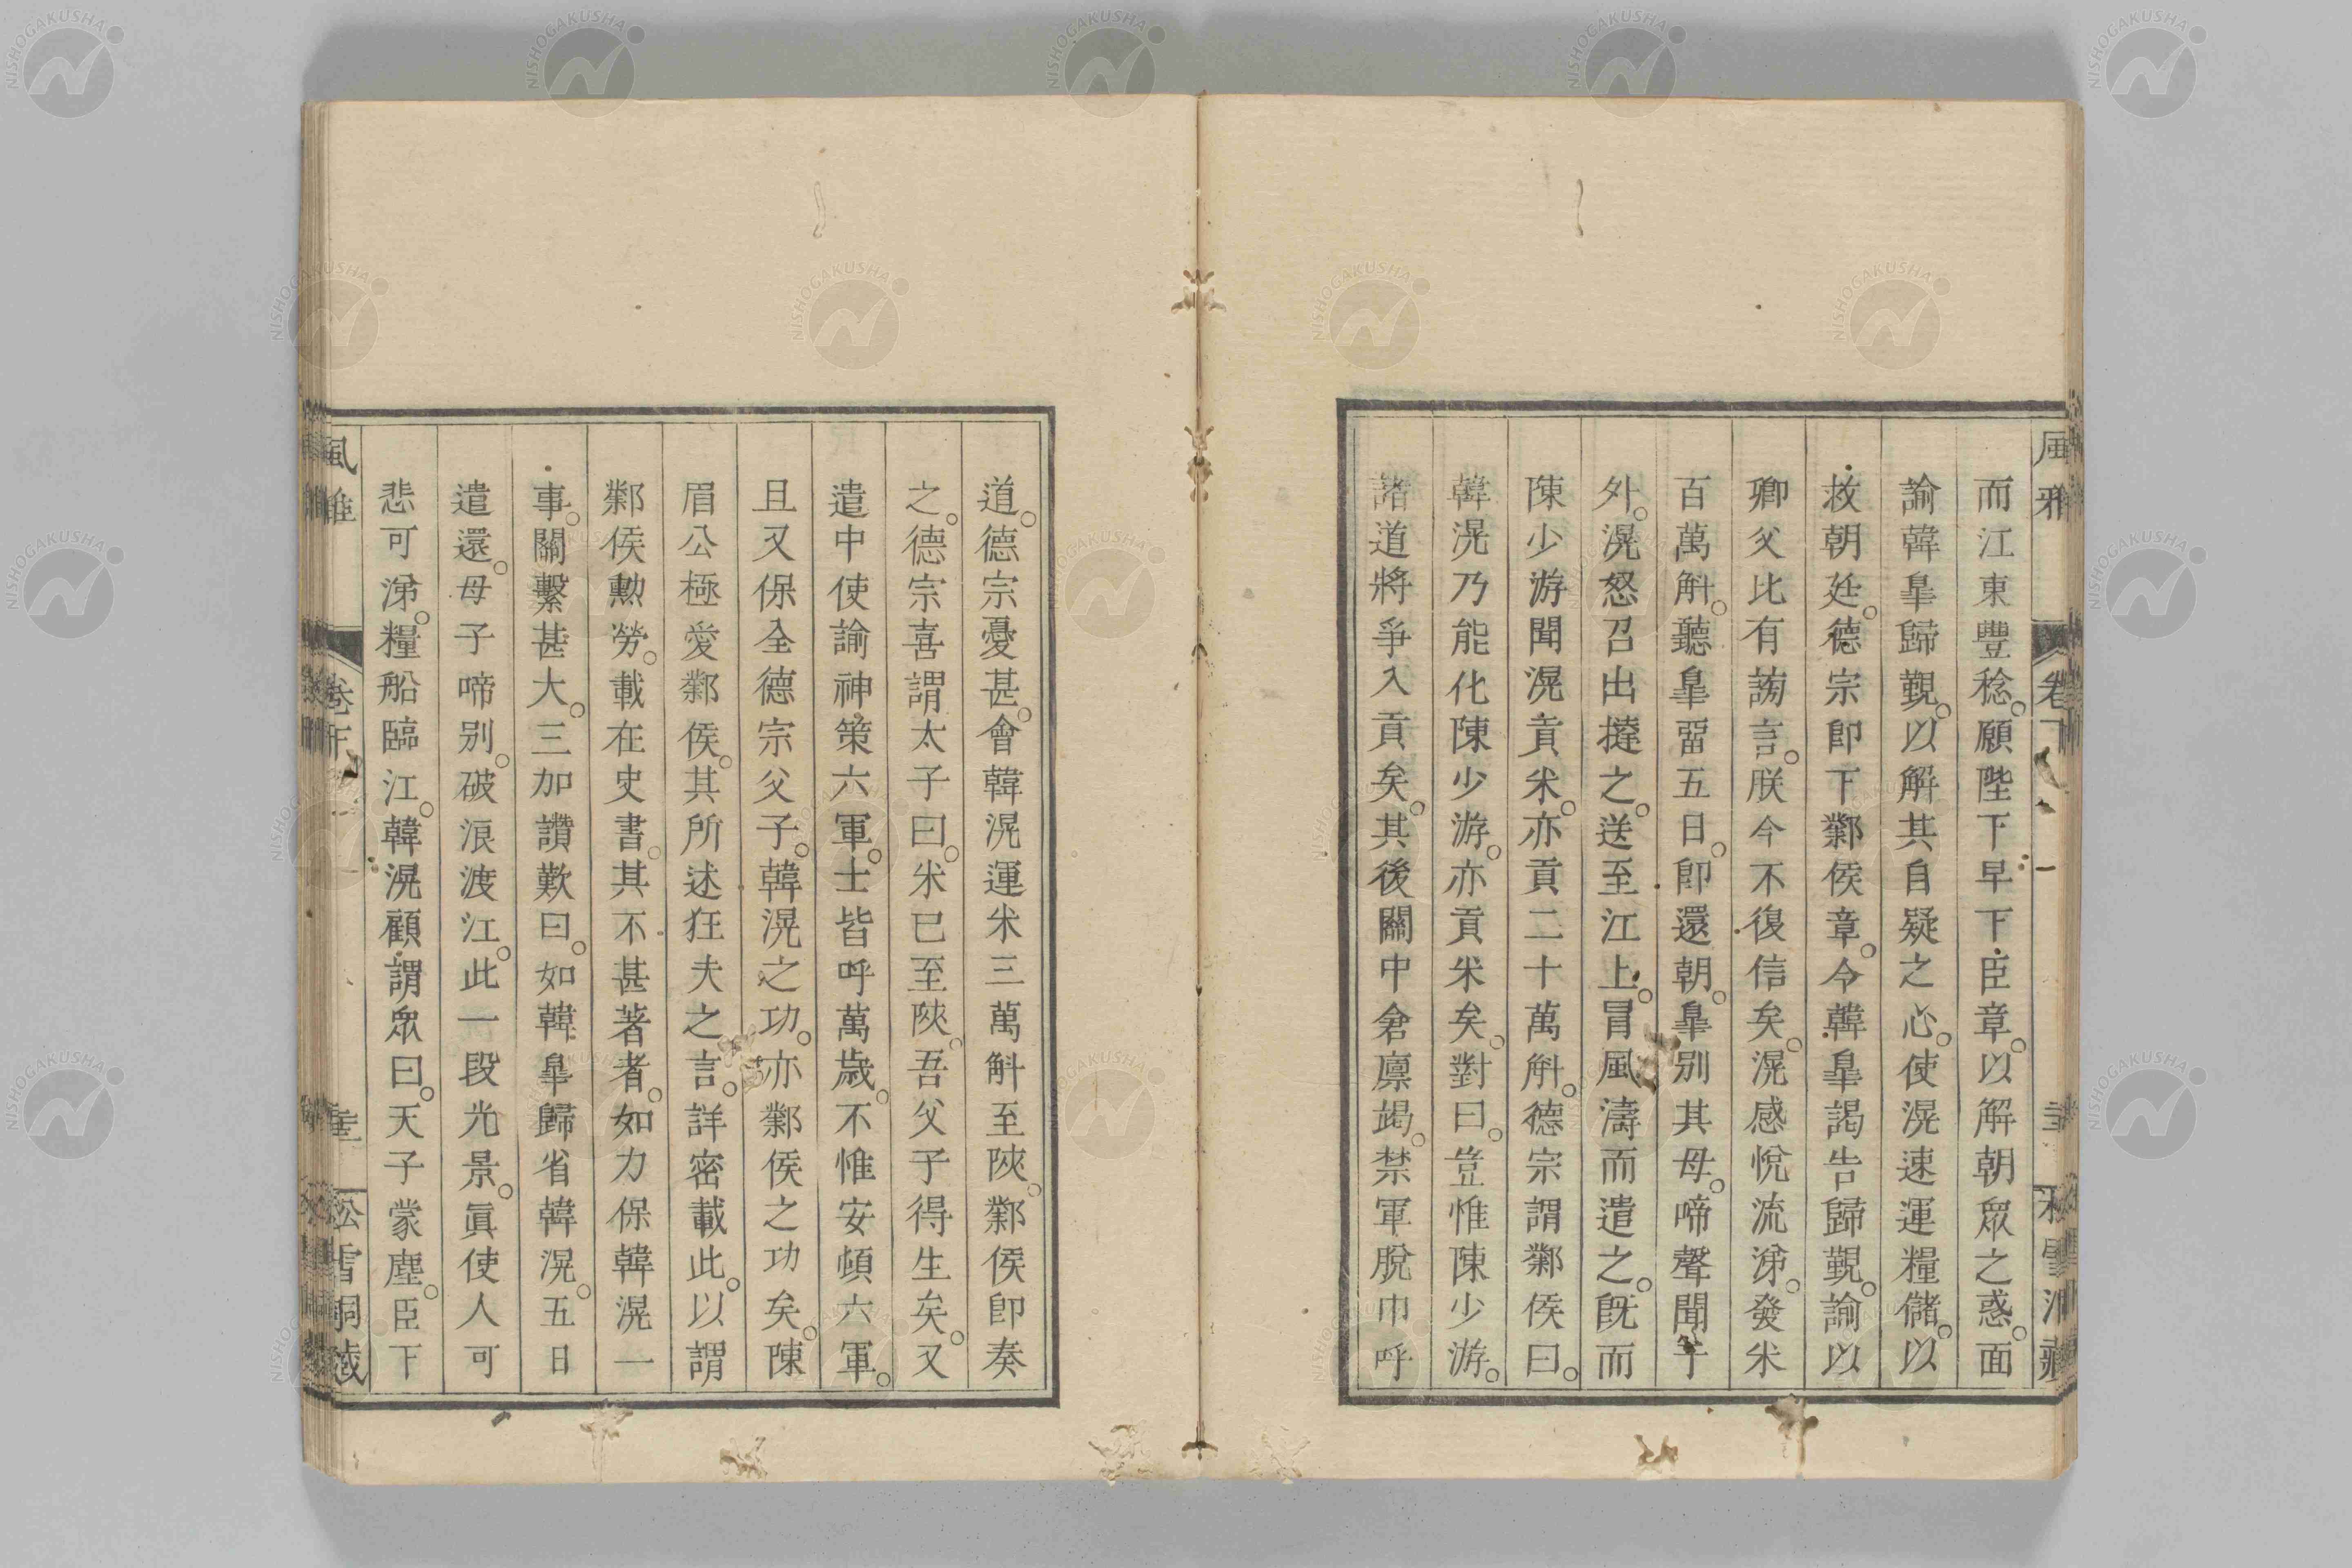 而江東豐稔。願陛下早下臣章。以解朝眾之惑。面
諭韓臯歸覲。以解其自疑之心。使滉速運糧儲。以
救朝廷。德宗即下鄴侯章。令韓臯謁告歸覲。諭以
卿父比有謗言。朕今不復信矣。滉感悅流涕。發米
百萬斛。聽臯畱五日。卽還朝。臯別其母。啼聲聞于
外。滉怒召出撻之。送至江上。冒風濤而遣之。旣而
陳少游聞滉貢米。亦貢二十萬斛。德宗謂鄴侯曰。
韓滉乃能化陳少游。亦貢米矣。對曰。豈惟陳少游。
諸道將爭入貢矣。其後關中倉廪竭。禁軍脫巾呼
道。德宗憂甚。會韓滉運米三萬斛至陝。鄴侯卽奏
之。德宗喜謂太子曰。米已至陝。吾父子得生矣。又
遣中使諭神策六軍。士皆呼萬歲。不惟安頓六軍。
且又保全德宗父子。韓滉之功。亦鄴侯之功矣。陳
眉公極愛鄴侯。其所述狂夫之言。詳密載此。以謂
鄴侯勲勞。載在史書。其不甚著者。如力保韓滉一
事。關繫甚大。三加讚歎曰。如韓臯歸省韓滉。五日
遣還。母子啼別。破浪渡江。此一段光景。眞使人可
悲可涕。糧船臨江。韓滉顧謂眾曰。天子蒙塵。臣下
風雅
卷下